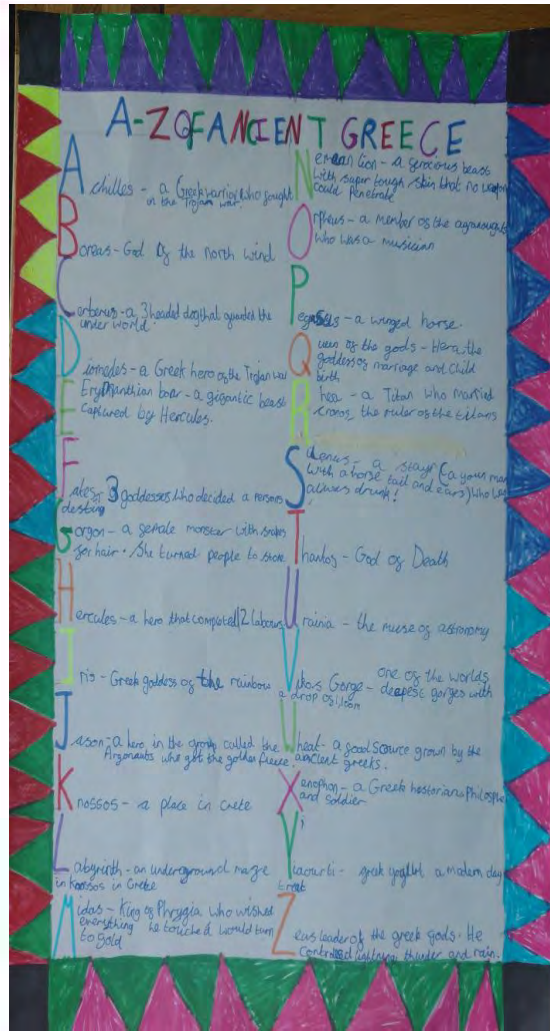 A-Z OF ANCIENT GREECE
Achilles - a Greek warrior who fought
in the Trojan war.
Boreas - God of the north wind
Cerberus - a 3 headed dog that guarded the
under world.
Diomedes - a Greek hero of the Trojan war
Erymanthian boar - a gigantic beast
captured by Hercules.
Fates, 3 goddesses who decided a persons
destiny
Gorgon - a female monster with snakes
for hair. She turned people to stone
Hercules - a hero that completed 12 labours
Iris - Greek goddess of the rainbow
Jason - a hero in the group called the
Argonauts who got the golden fleece
Knossos - a place in Crete
Labyrinth - an underground maze
in Knossos in Crete
Midas - King of Phrygia who wished
everything he touched would turn
to gold
Nemean Lion - a ferocious beast
with super tough skin that no weapon
could penetrate
Orpheus - a member of the
who was a musician
Pegasus - a winged horse.
Queen of the gods - Hera, the
goddess of marriage and child
birth
Rhea - a Titan who married
cronos, the ruler of the titans
Silenus - a (a young man
with a horse tail and ears) who was
always drunk!
Thantos - God of Death
Urainia - the muse of astronomy
Vikos Gorge - one of the worlds
deepest gorges with
a drop of 1,100m
Wheat - a food source grown by the
ancient greeks.
Xenophon - a Greek historian, Philosopher
and soldier
Yiaourti - greek a modern day
treat
Zeus leader of the greek gods. He
controlled lightning thunder and rain.